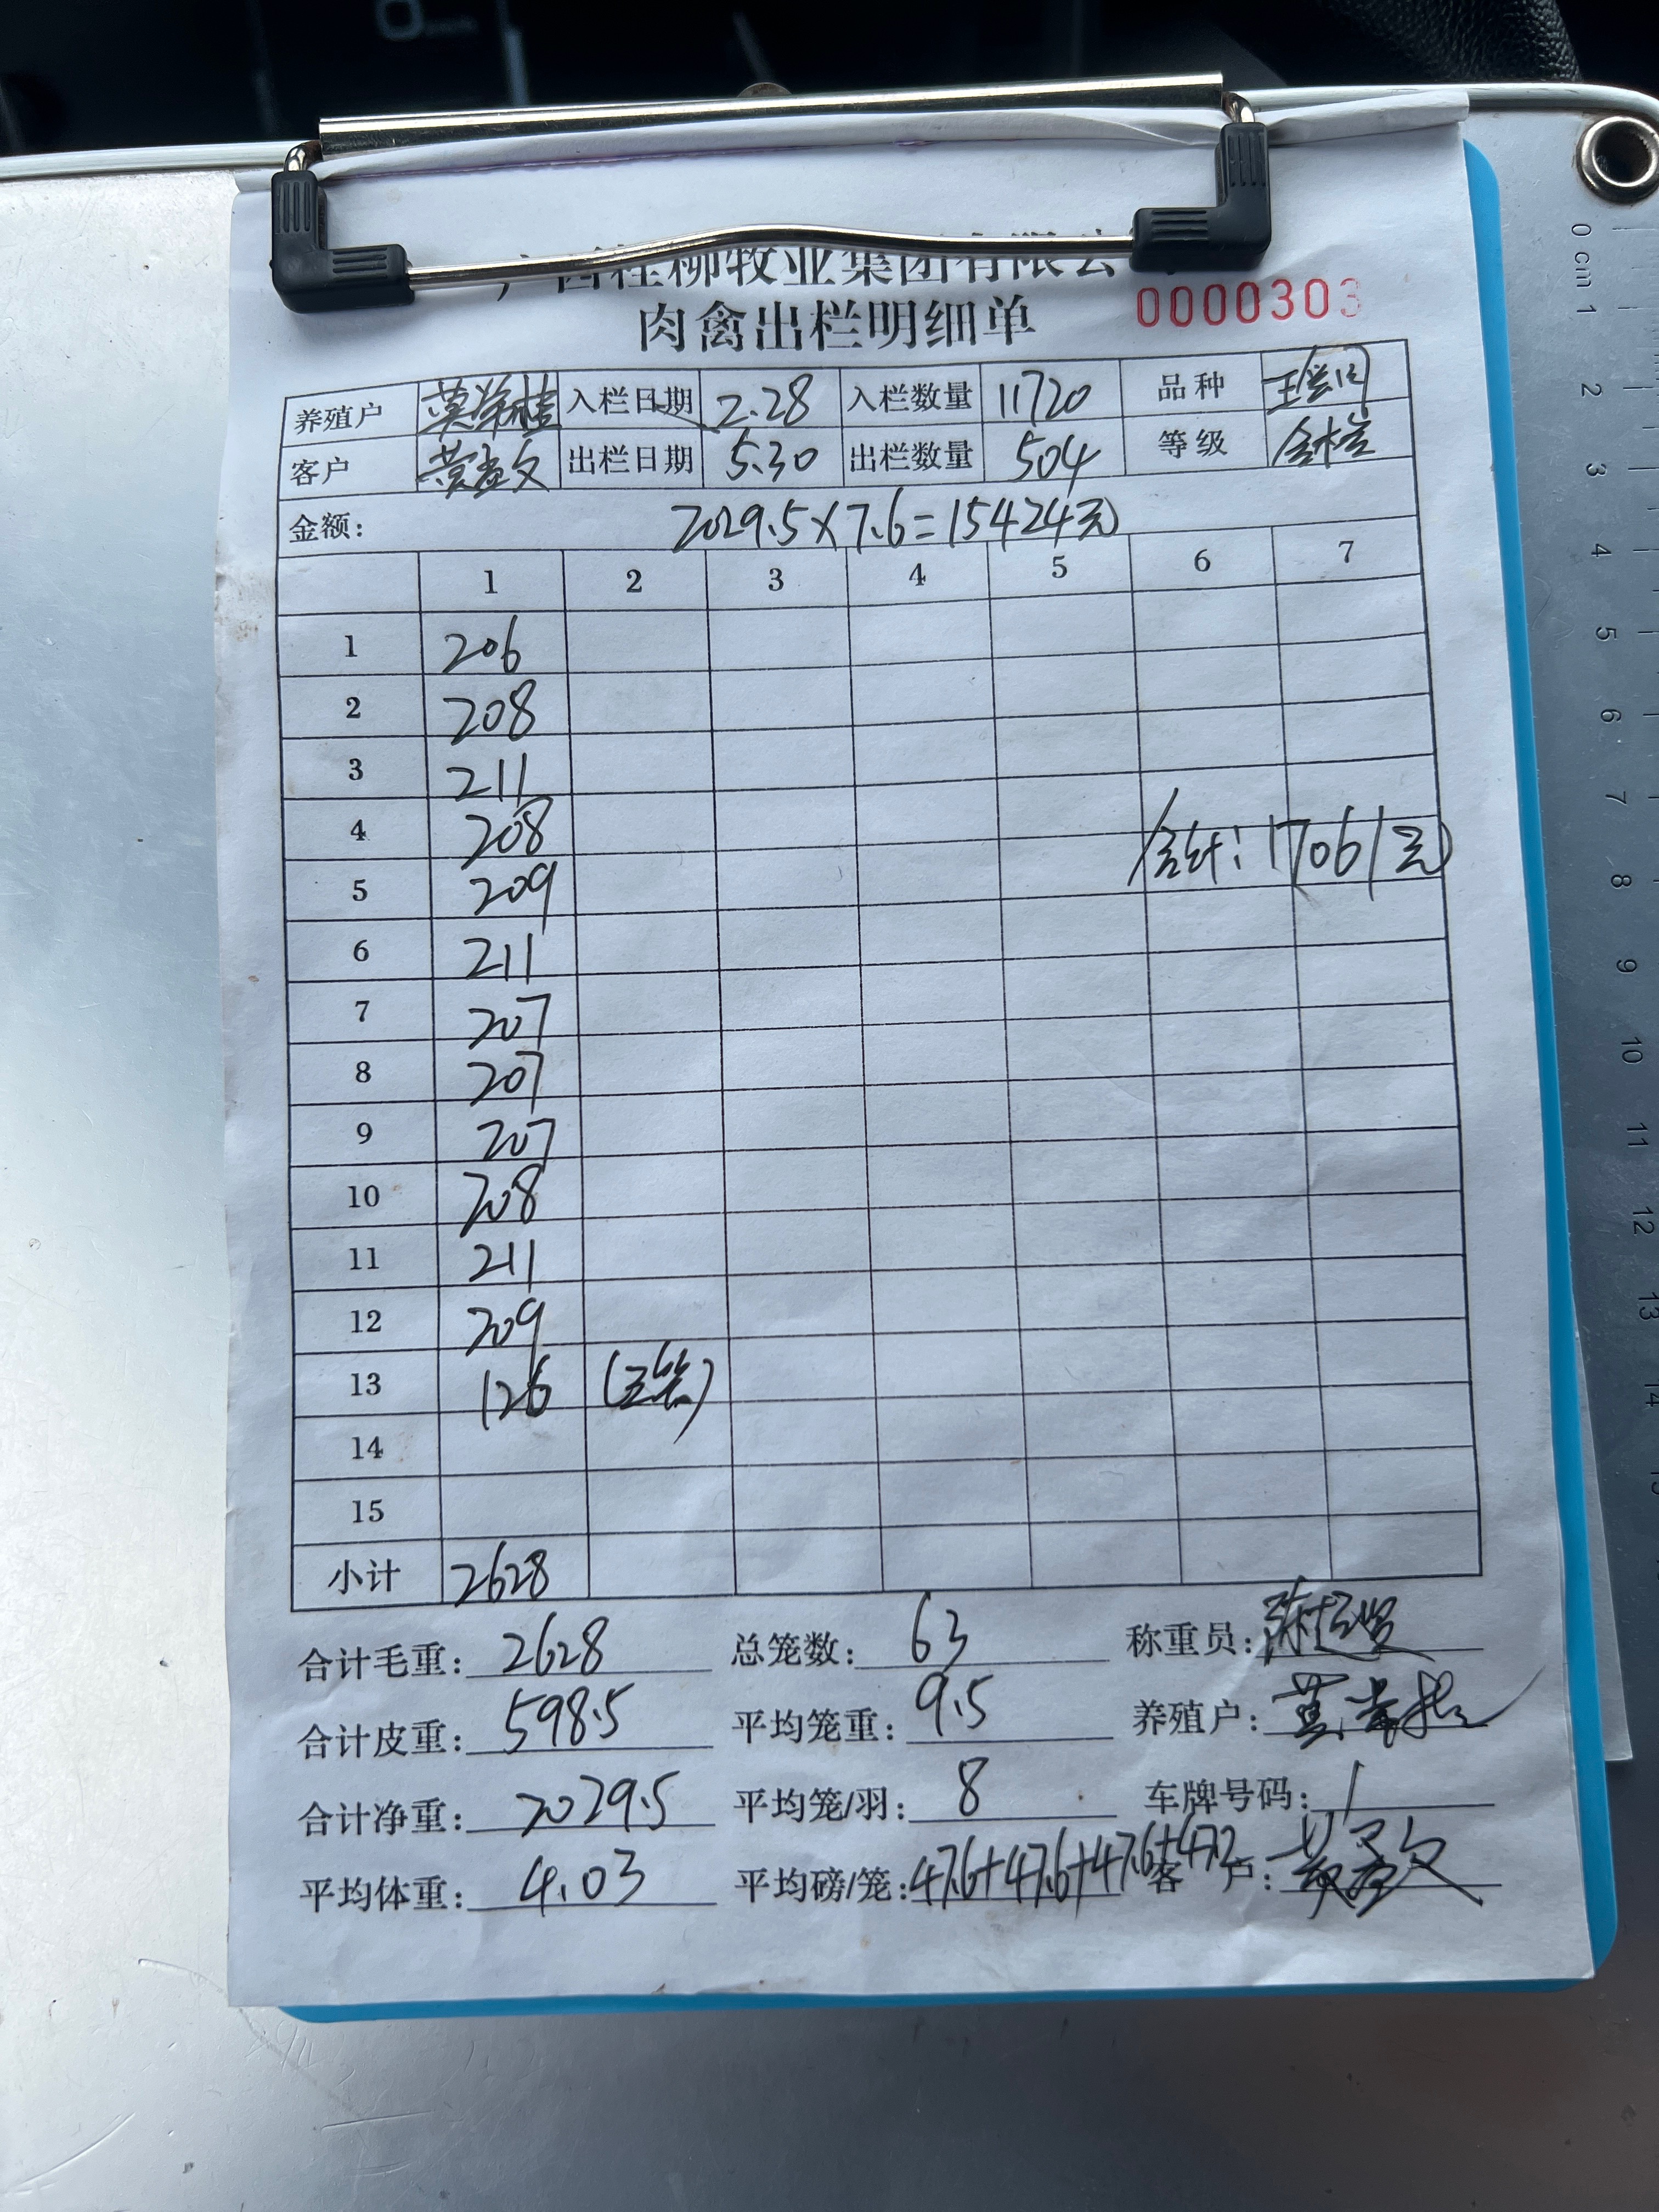 广西桂柳牧业集团有限公
肉禽出栏明细单 0000303
养殖户 莫常桂 入栏日期 2.28 入栏数量 11720 品种
客户 黄孟文 出栏日期 5.30 出栏数量 504 等级 合格
金额: 2029.5×7.6=15424元
1 2 3 4 5 6 7
1 206
2 208
3 211
4 208
合计:17061元
5 209
6 211
7 207
8 207
9 207
10 208
11 211
12 209
13 126 (三笼)
14
15
小计 2628
合计毛重: 2628 总笼数: 63 称重员:
合计皮重: 598.5 平均笼重: 9.5 养殖户:
合计净重: 2029.5 平均笼/羽: 8 车牌号码: 1
平均体重: 4.03 平均磅/笼: 47.6+47.6+47.6+47.2 客户:
0 cm 1
2
3
4
5
6
7
8
9
10
11
12
13
14